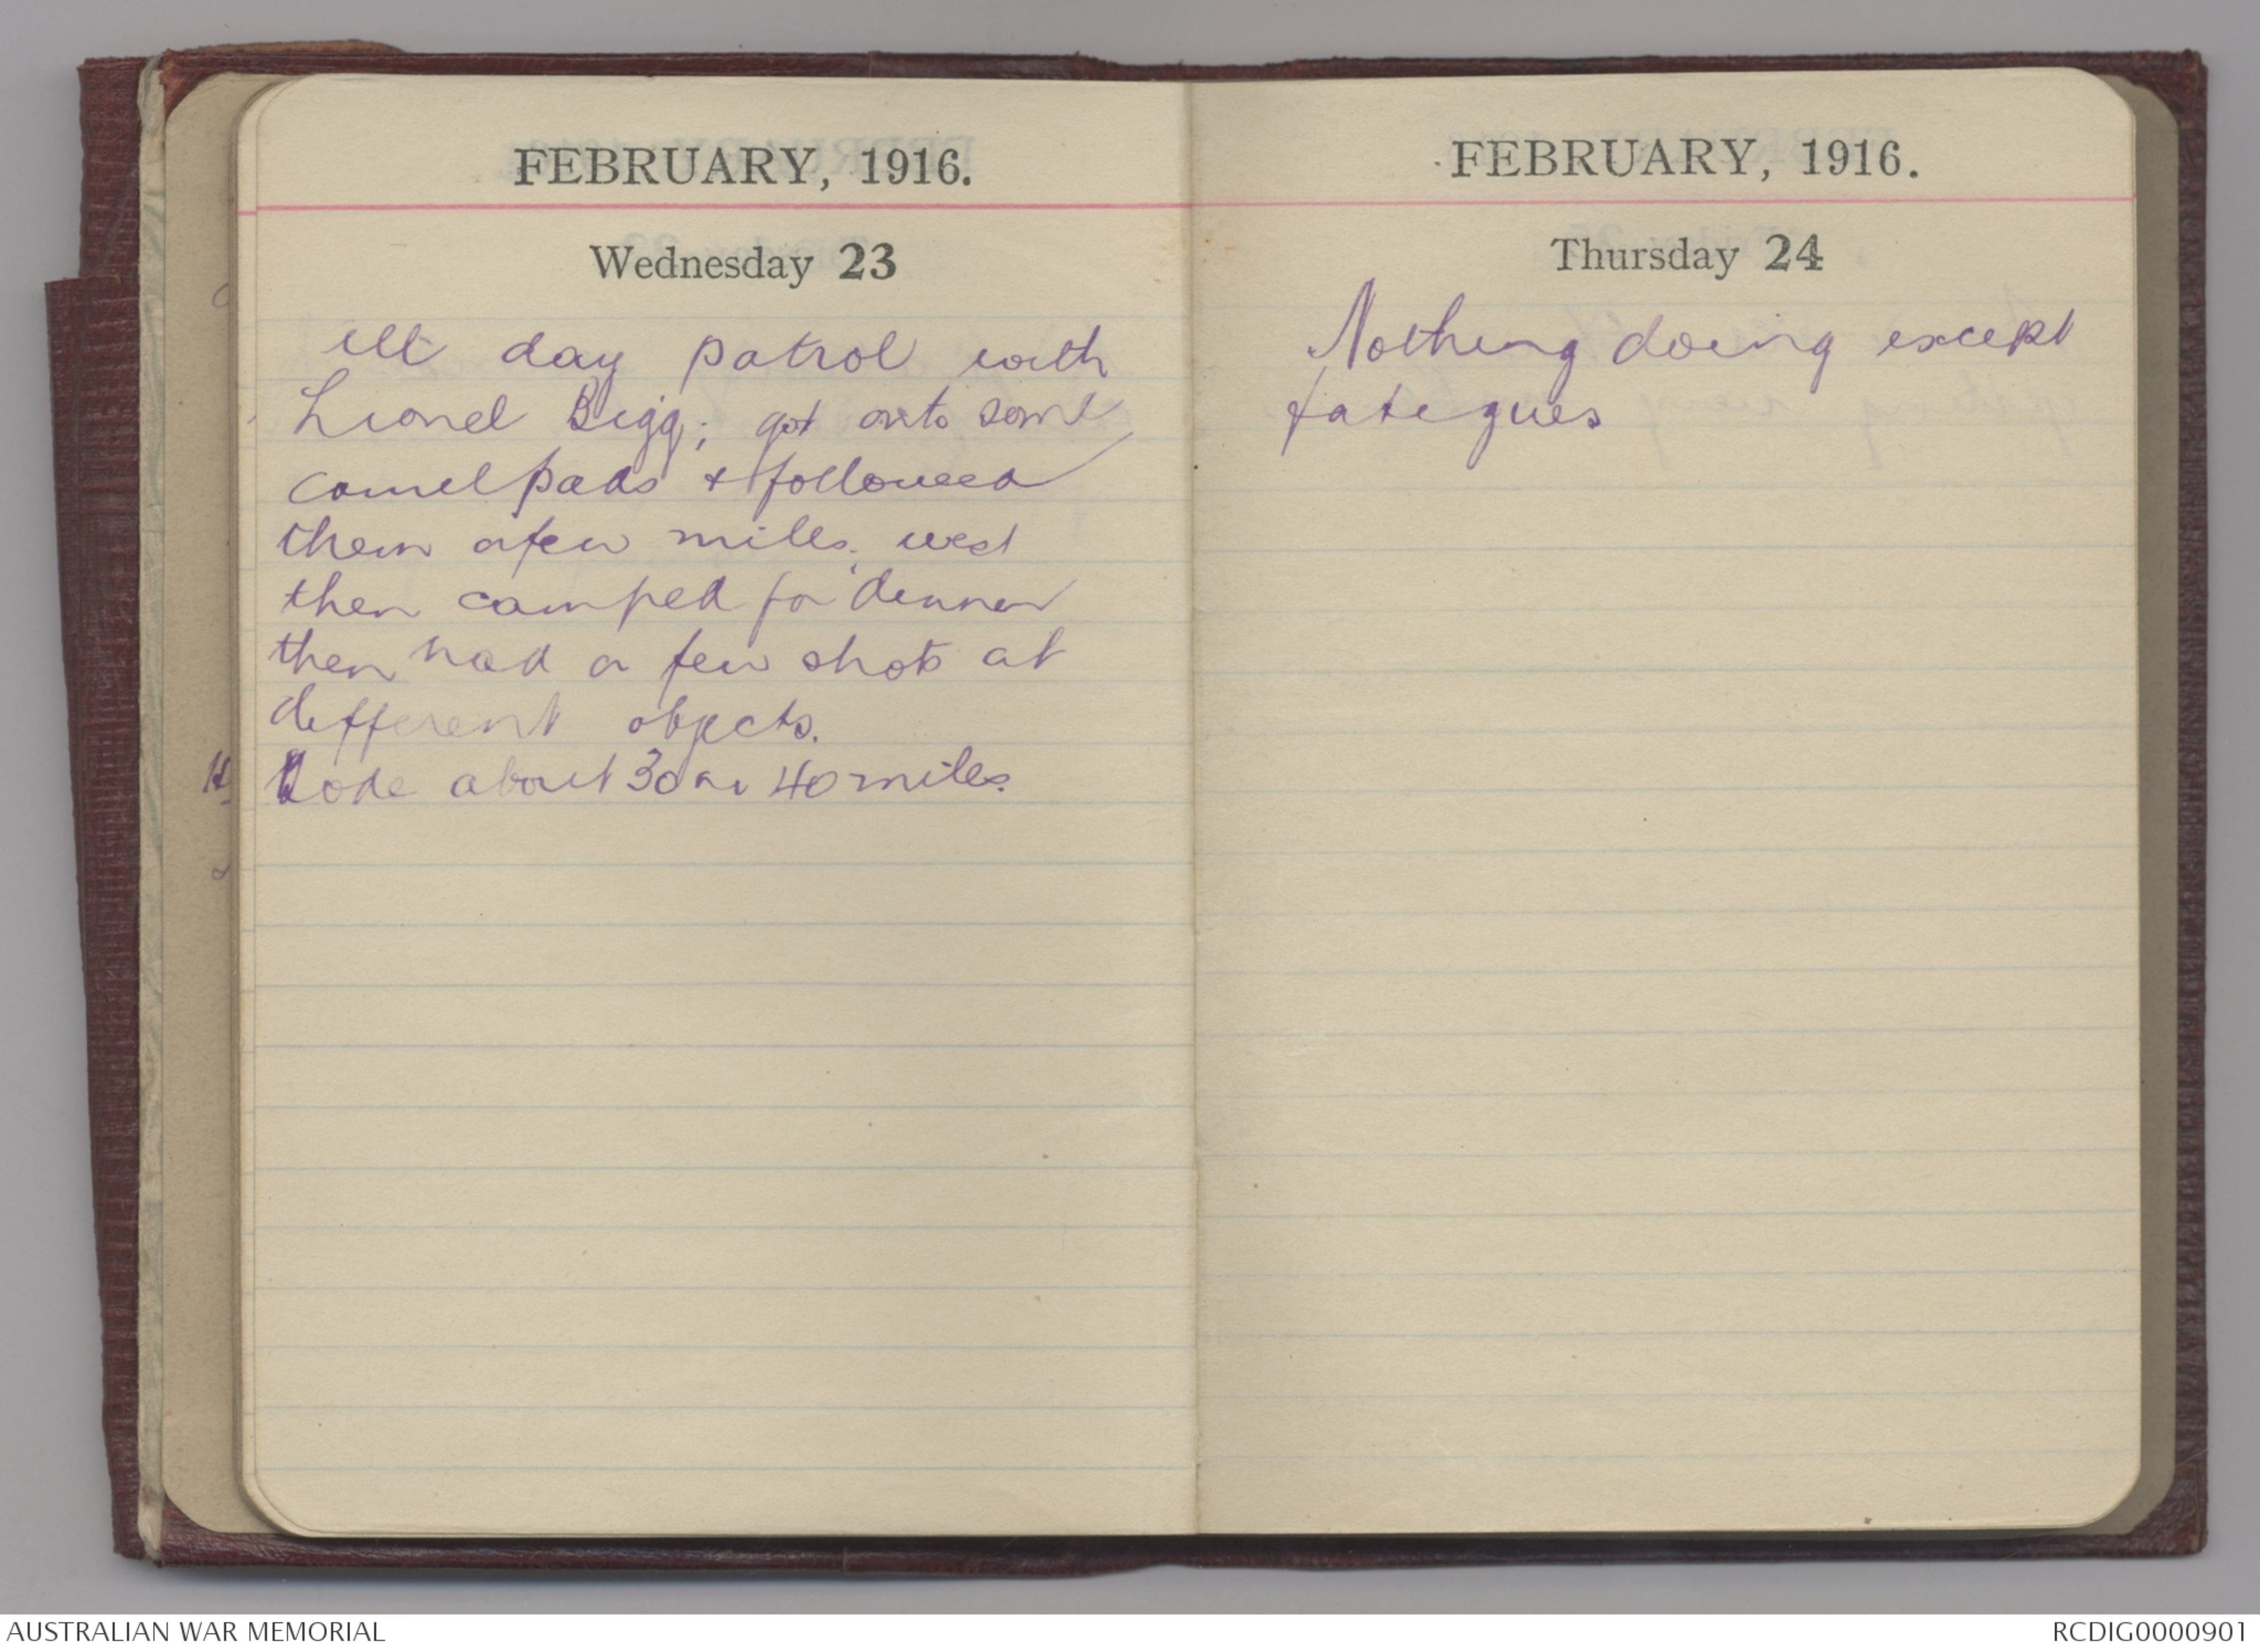 FEBRUARY, 1916.
Wednesday 23
All day patrol with
Lionel Bigg; got onto some
camel pads & followed
them a few miles west
then camped for dinner
then had a few shots at
different objects.
Rode about 30 or 40 miles.
FEBRUARY, 1916.
Thursday 24
Nothing doing except
fatigues
AUSTRALIAN WAR MEMORIAL
RCDIG0000901